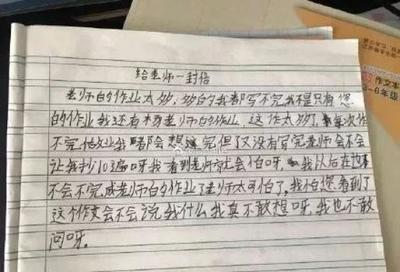 给老师一封信
老师的作业太多,多的我都写不完我不是只有您
的作业我还有杨老师的作业。这作太多了,每次作
不完作业我都会想写完但又没有写完老师会不会
让我抄10遍呀我看到老师就会怕呀。我以后在也
不会不完成老师的作业了老师太可怕了,我怕您看到了
这个作文会不会说我什么我真不敢想呀。我也不敢
问呀。
作文本
3-6年级